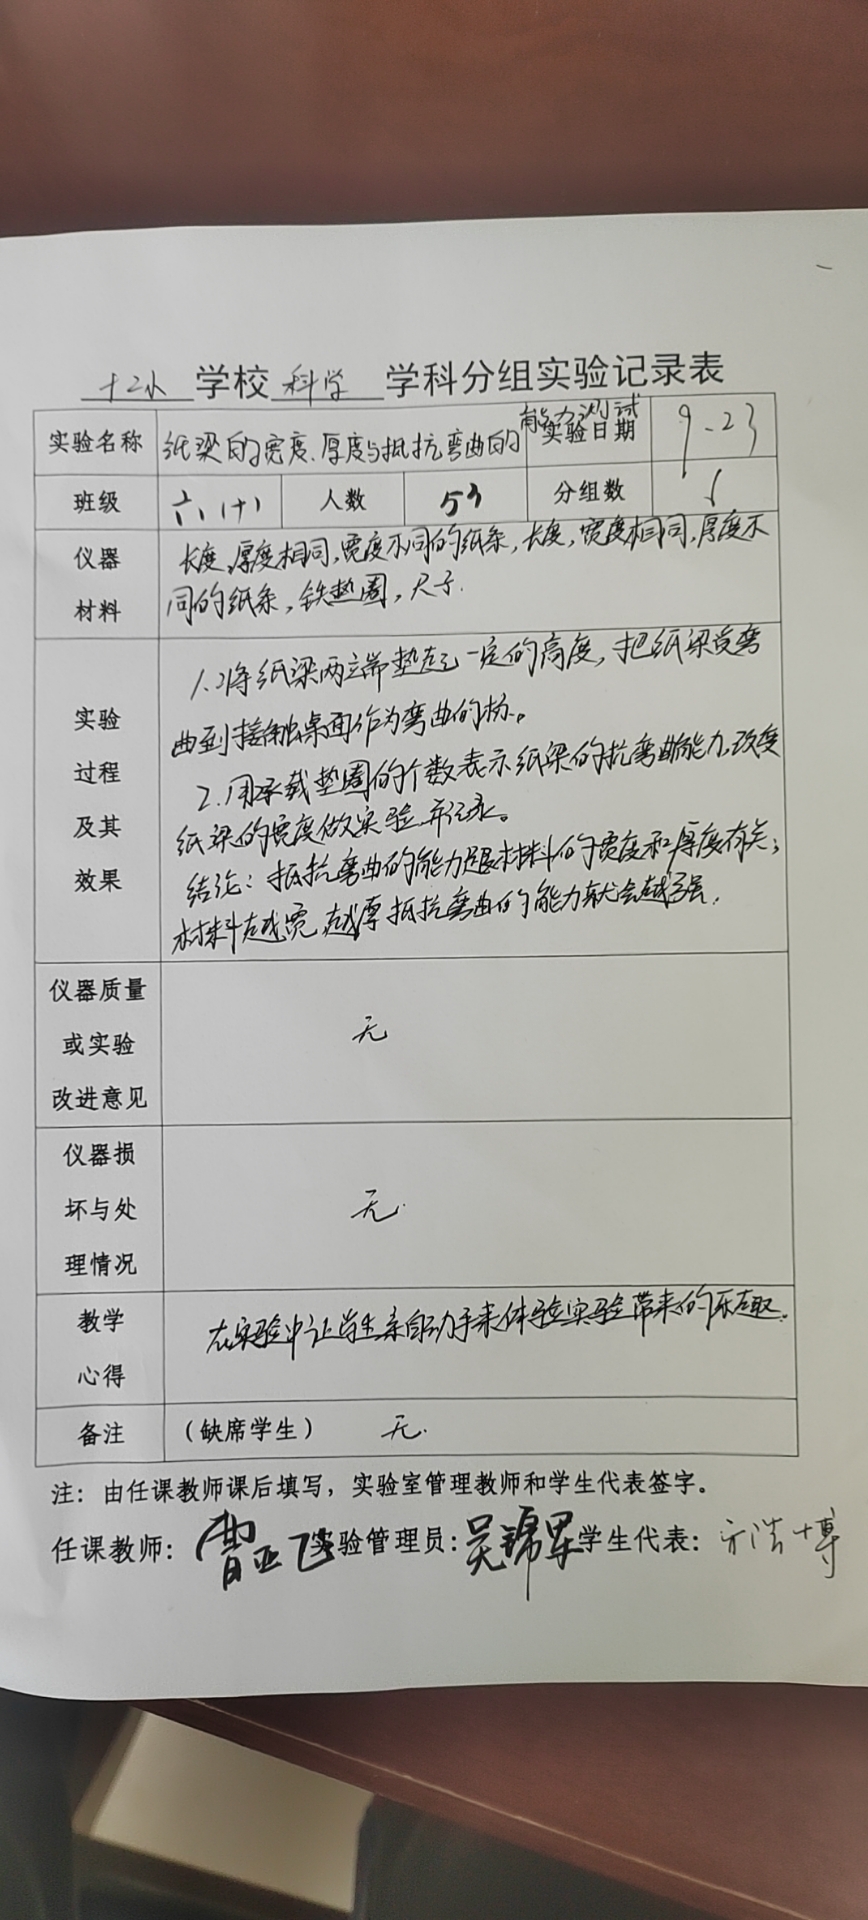 十二小 学校 科学 学科分组实验记录表
实验名称 纸梁的宽度、厚度与抵抗弯曲的能力测试 实验日期 9.23
班级 六、(十) 人数 53 分组数
仪器 长度,厚度相同,宽度不同的纸条,长度,宽度相同,厚度不
材料 同的纸条,铁垫圈,尺子.
1.将纸梁两端垫起一定的高度,把纸梁受弯
实验 曲到接触桌面作为弯曲的标。
过程 2.用承载垫圈的个数表示纸梁的抗弯曲能力,改变
及其 纸梁的宽度做实验,并记录。
效果 结论:抵抗弯曲的能力跟材料的宽度和厚度有关;
材料越宽,越厚抵抗弯曲的能力就会越强.
仪器质量
或实验 无
改进意见
仪器损
坏与处 无.
理情况
教学 在实验中让学生亲自动手来体验实验带来的乐趣.
心得
备注 (缺席学生) 无.
注:由任课教师课后填写,实验室管理教师和学生代表签字。
任课教师:曹亚飞 实验管理员:吴锦 学生代表:浩博